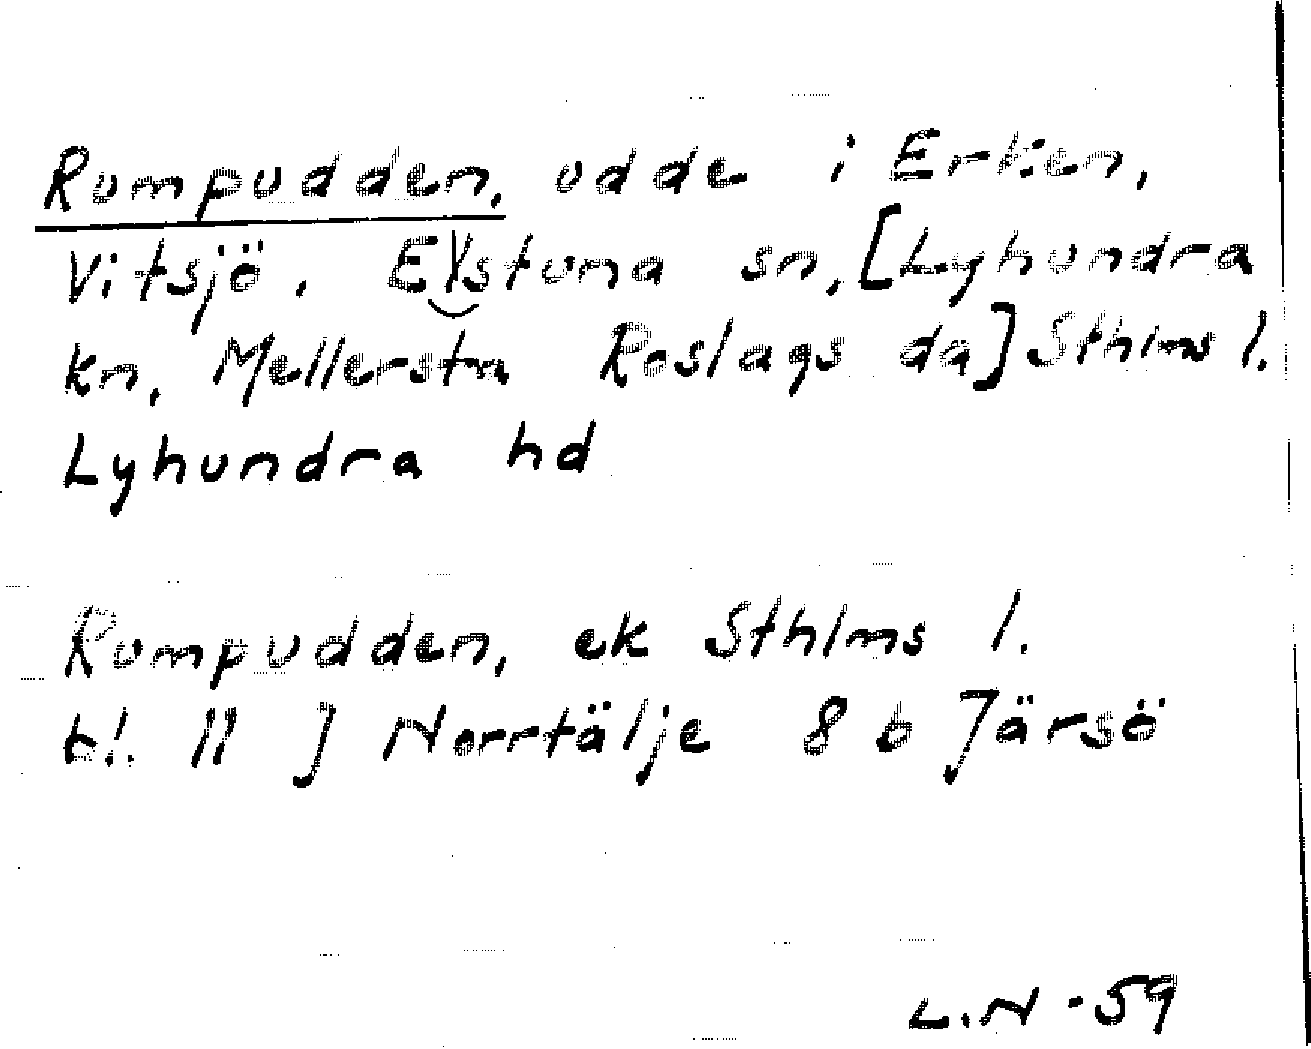 Rumpudden, udde i Erken,
Vitsjö, Estuna sn, [Lyhundra
kn, Mellersta Roslags da] Sthlms l.
Lyhundra hd
Rumpudden, ek Sthlms l.
bl. 11 J Norrtälje 8 b Järsö
L.N -59